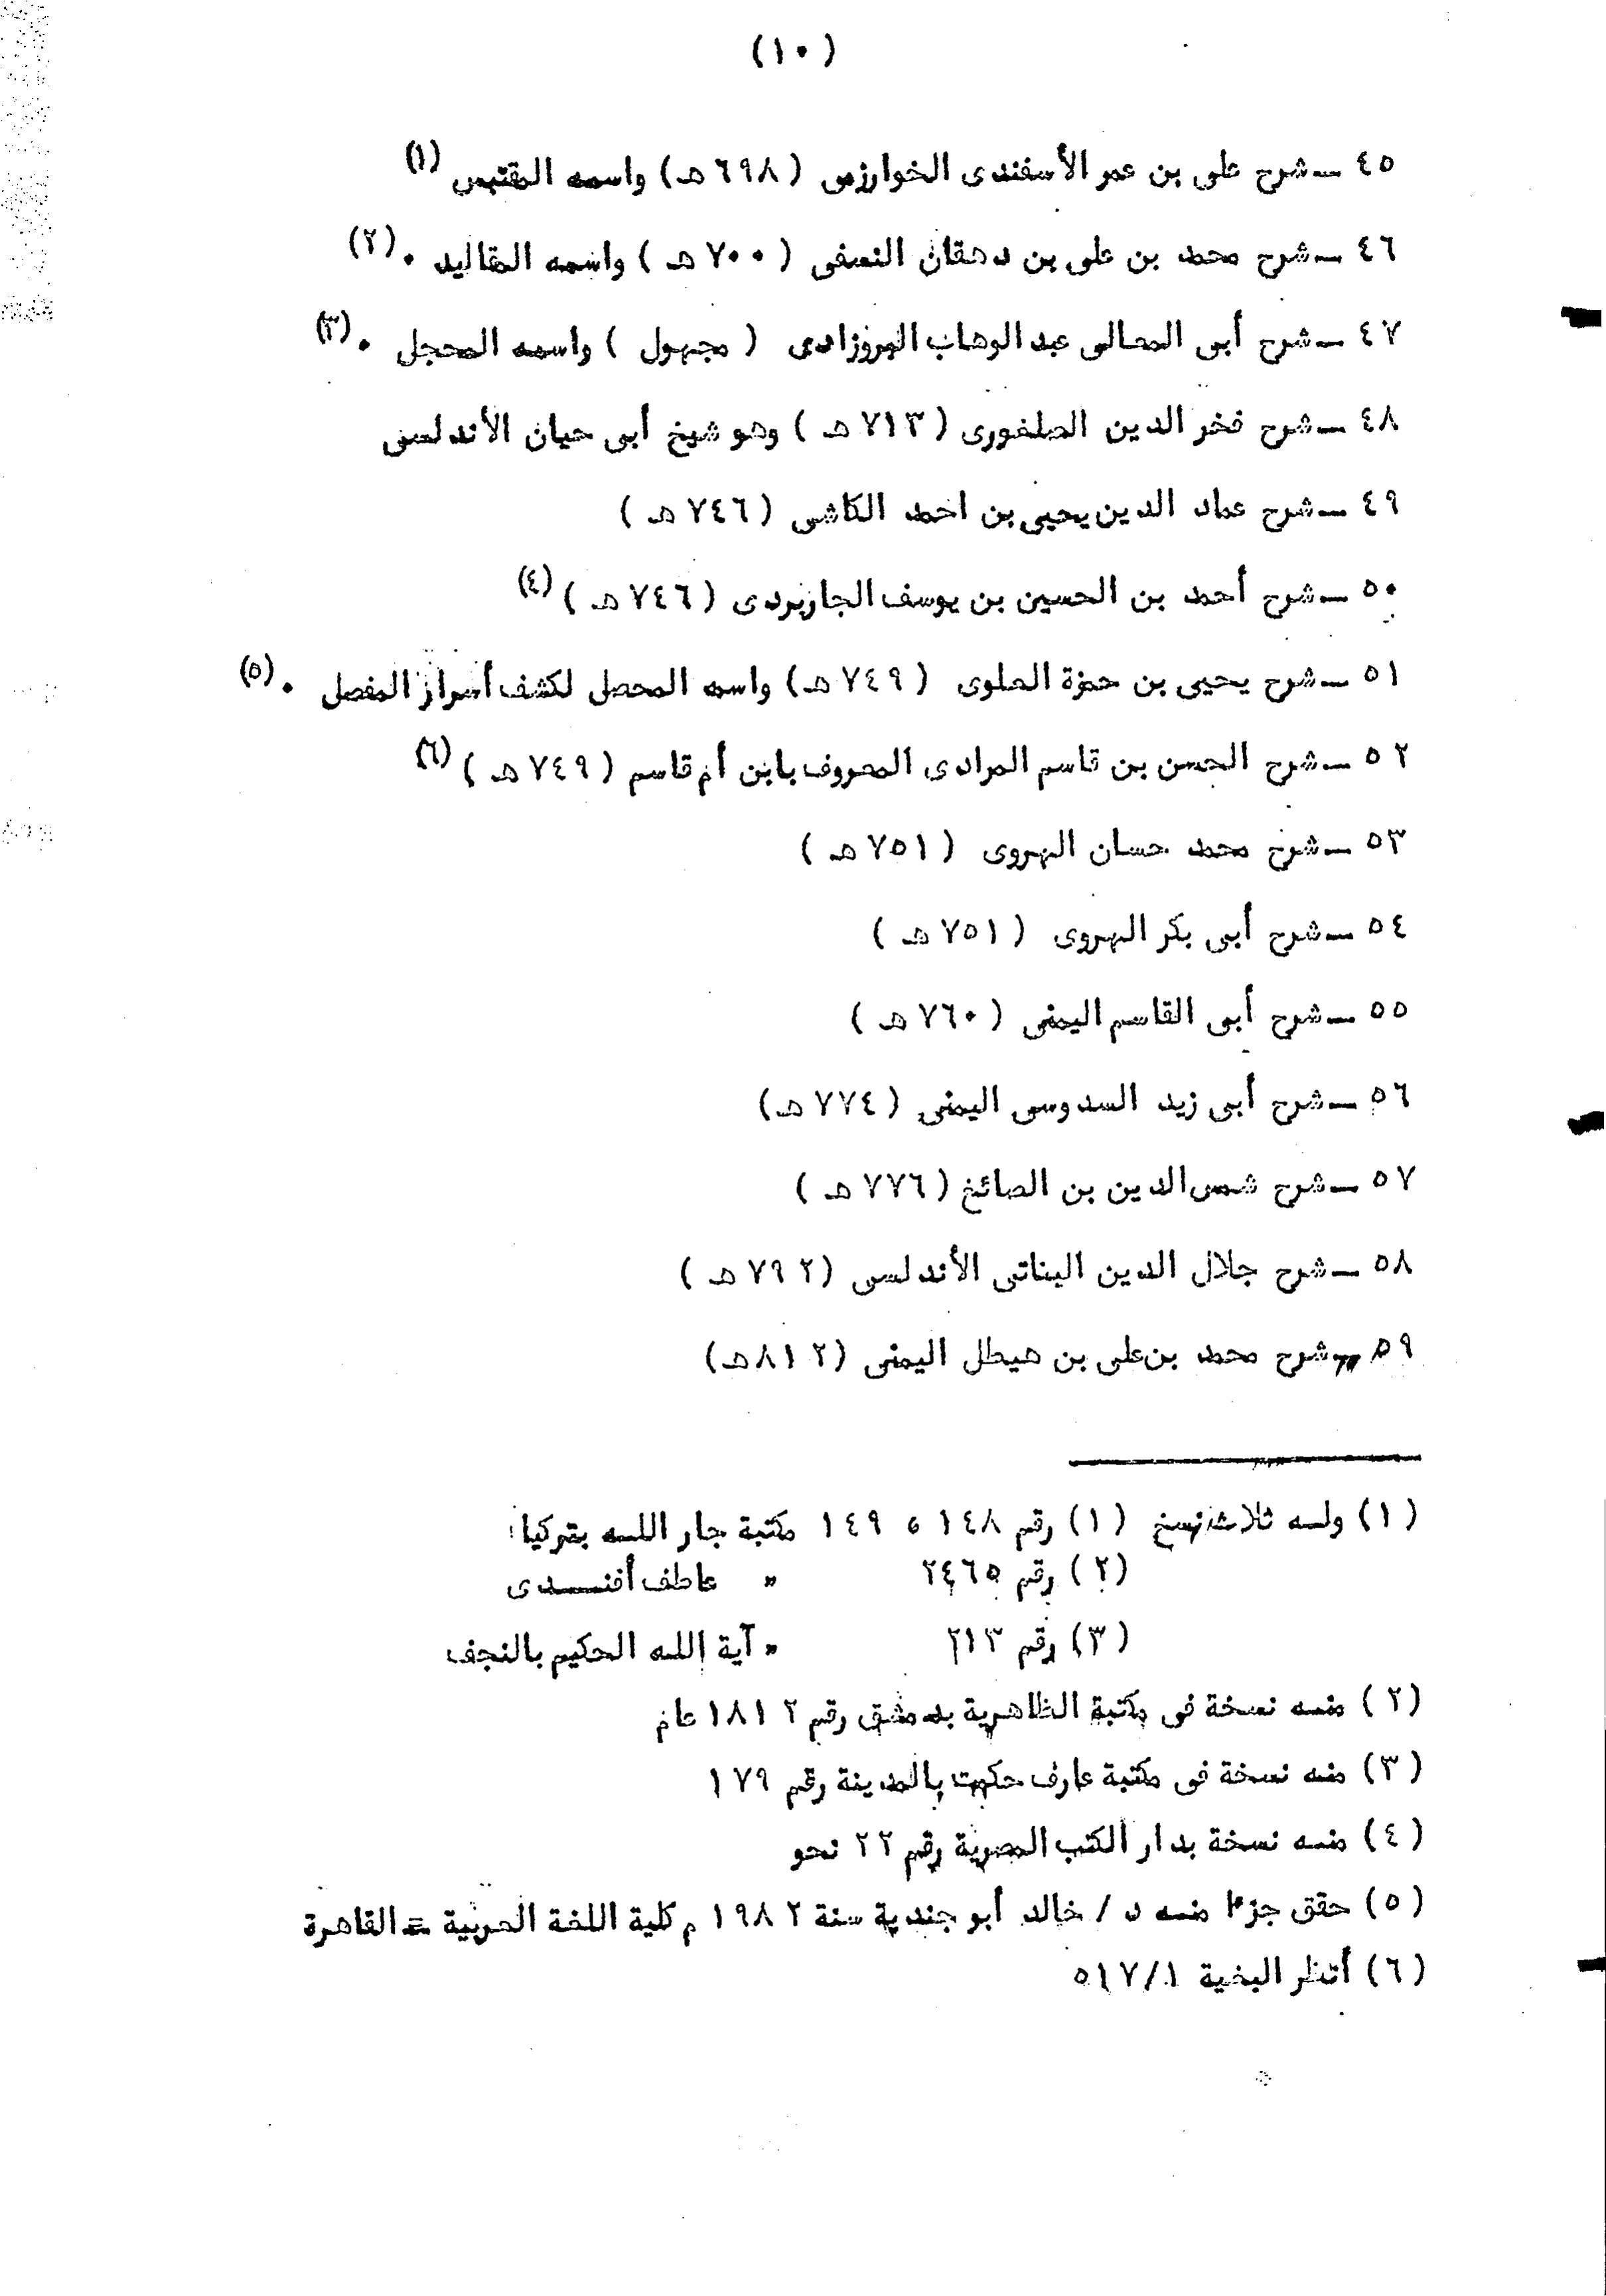 (١٠)
٤٥ ــ شرح على بن عمر الأسفندى الخوارزمى (٦٩٨ هـ) واسمه المقتبس (١)
٤٦ ــ شرح محمد بن على بن دهقان النسفى (٧٠٠ هـ) واسمه المقاليد . (٢)
٤٧ ــ شرح أبى المعالى عبد الوهاب (مجهول) واسمه المحجل . (٣)
٤٨ ــ شرح فخر الدين (٧١٣ هـ) وهو شيخ أبى حيان الأندلسى
٤٩ ــ شرح عماد الدين يحيى بن احمد الكاشى (٧٤٦ هـ)
٥٠ ــ شرح أحمد بن الحسين بن يوسف الجاربردى (٧٤٦ هـ) (٤)
٥١ ــ شرح يحيى بن حمزة العلوى (٧٤٩ هـ) واسمه المحصل لكشف أسرار المفصل . (٥)
٥٢ ــ شرح الحسن بن قاسم المرادى المعروف بابن أم قاسم (٧٤٩ هـ) (٦)
٥٣ ــ شرح محمد حسان الهروى (٧٥١ هـ)
٥٤ ــ شرح أبى بكر الهروى (٧٥١ هـ)
٥٥ ــ شرح أبى القاسم اليمنى (٧٦٠ هـ)
٥٦ ــ شرح أبى زيد السدوسى اليمنى (٧٧٤ هـ)
٥٧ ــ شرح شمس الدين بن الصائغ (٧٧٦ هـ)
٥٨ ــ شرح جلال الدين البناتى الأندلسى (٧٩٢ هـ)
٥٩ ــ شرح محمد بن على بن هيطل اليمنى (٨١٢ هـ)
(١) وله ثلاث نسخ (١) رقم ١٤٨ ، ١٤٩ مكتبة جار الله بتركيا
(٢) رقم ٢٤٦٥ " عاطف أفندى
(٣) رقم ٢١٣ " آية الله الحكيم بالنجف
(٢) منه نسخة فى مكتبة الظاهرية بدمشق رقم ١٨١٢ عام
(٣) منه نسخة فى مكتبة عارف حكمت بالمدينة رقم ١٧٩
(٤) منه نسخة بدار الكتب المصرية رقم ٢٢ نحو
(٥) حقق جزءا منه د / خالد أبو جندية سنة ١٩٨٢ م كلية اللغة العربية = القاهرة
(٦) أنظر البغية ٥١٧/١